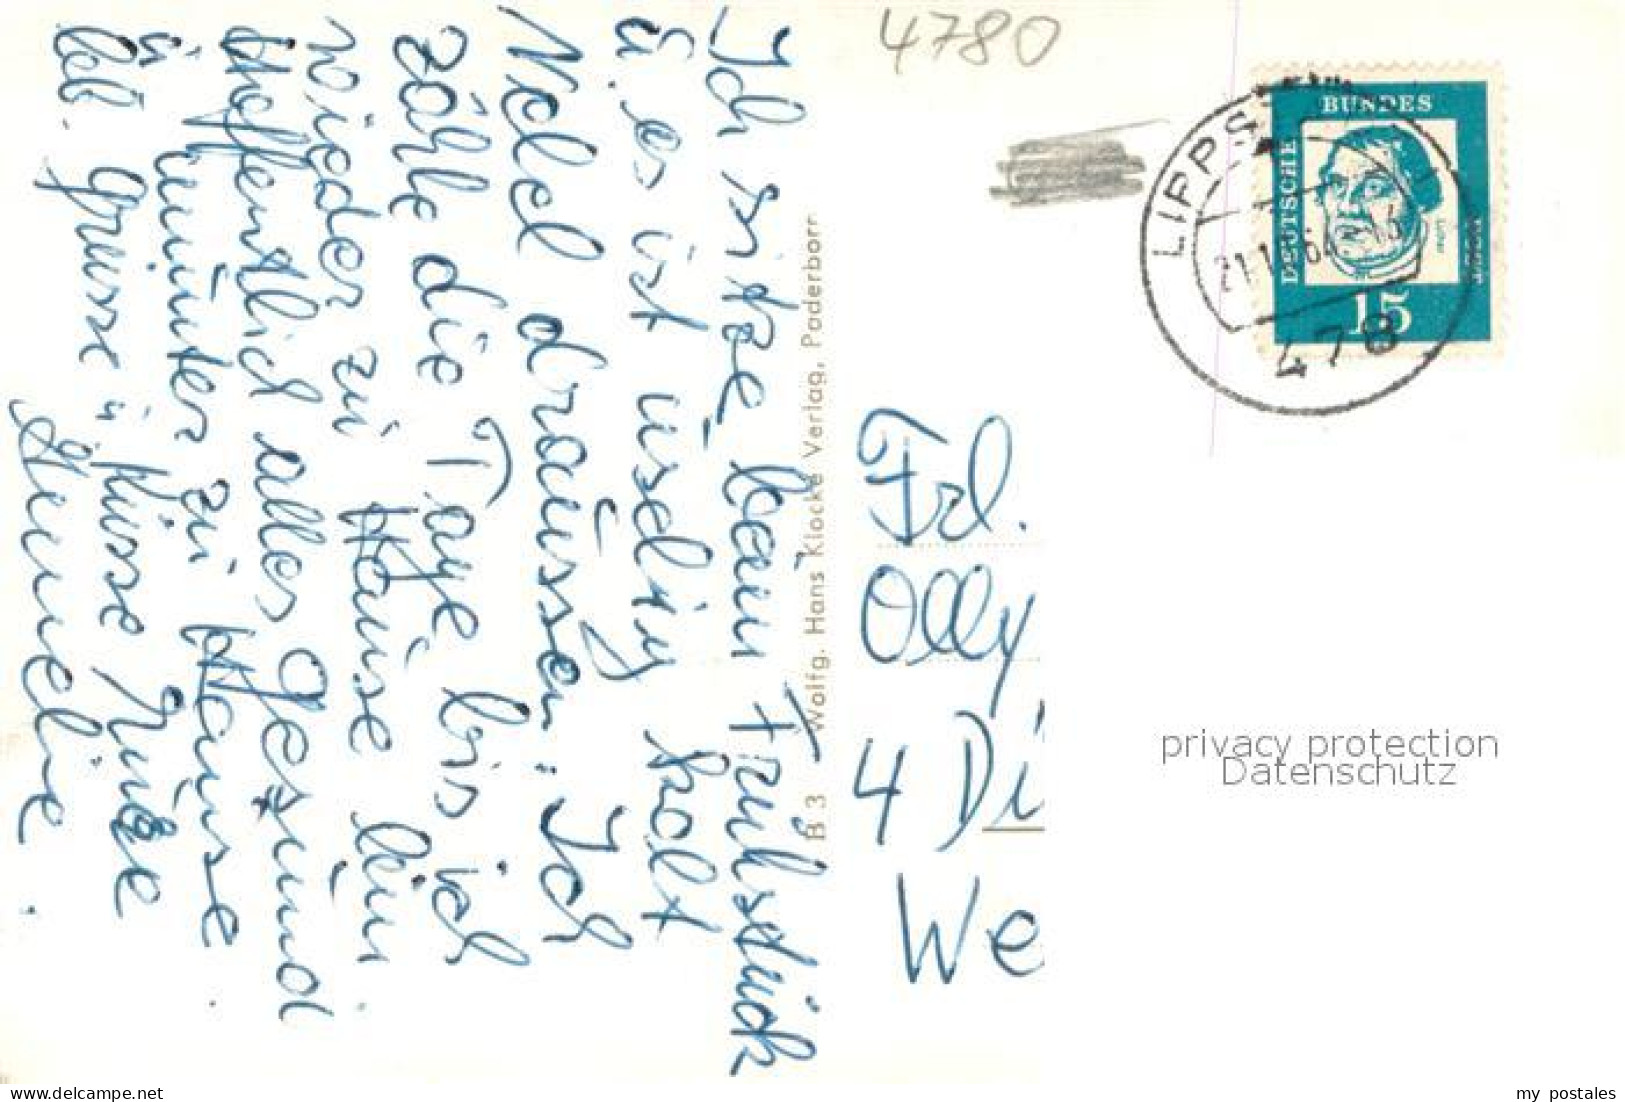 Ich sitze beim Frühstück
u. es ist usselig kalt
Nebel draussen. Ich
zähle die Tage bis ich
wieder zu Hause bin
Hoffentlich alles Gesund
u. munter zu Hause.
Lb. Grüsse u. Küsse
B 3 Wolfg. Hans Klocke Verlag, Paderborn
4780
DEUTSCHE BUNDES
Luther
15
LIPPS
478
Frl.
Olly
4 Di
We
privacy protection
Datenschutz
my postales